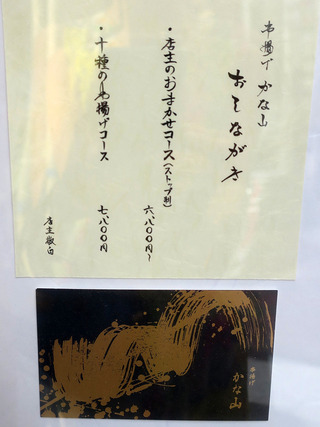 串揚て かな山
おしながき
・店主のおまかせコース(ストップ制)
六、八〇〇円〜
・十種の串揚げコース
七、八〇〇円
店主敬白
串揚げ
かな山